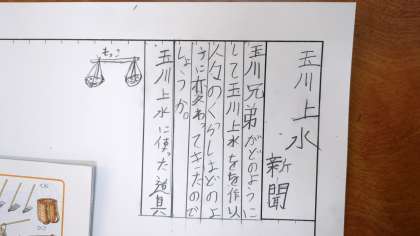 玉川上水
新聞
玉川兄弟がどのように
して玉川上水をを作り
人々のくらしはどのよ
うに変わってきたので
しょうか。
玉川上水に使った道具
もっこ